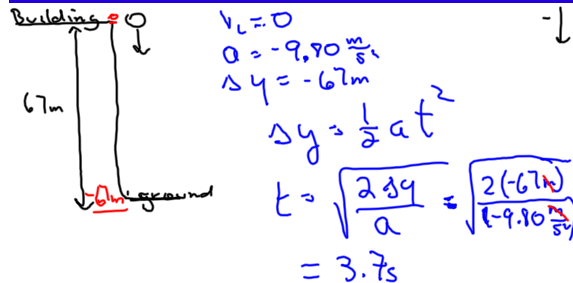 Building 0
67m
-67m ground
Vᵢ = 0
a = -9.80 m/s²
Δy = -67m
Δy = ½ a t²
t = √(2Δy/a) = √(2(-67m)/(-9.80 m/s²))
= 3.7s
-↓